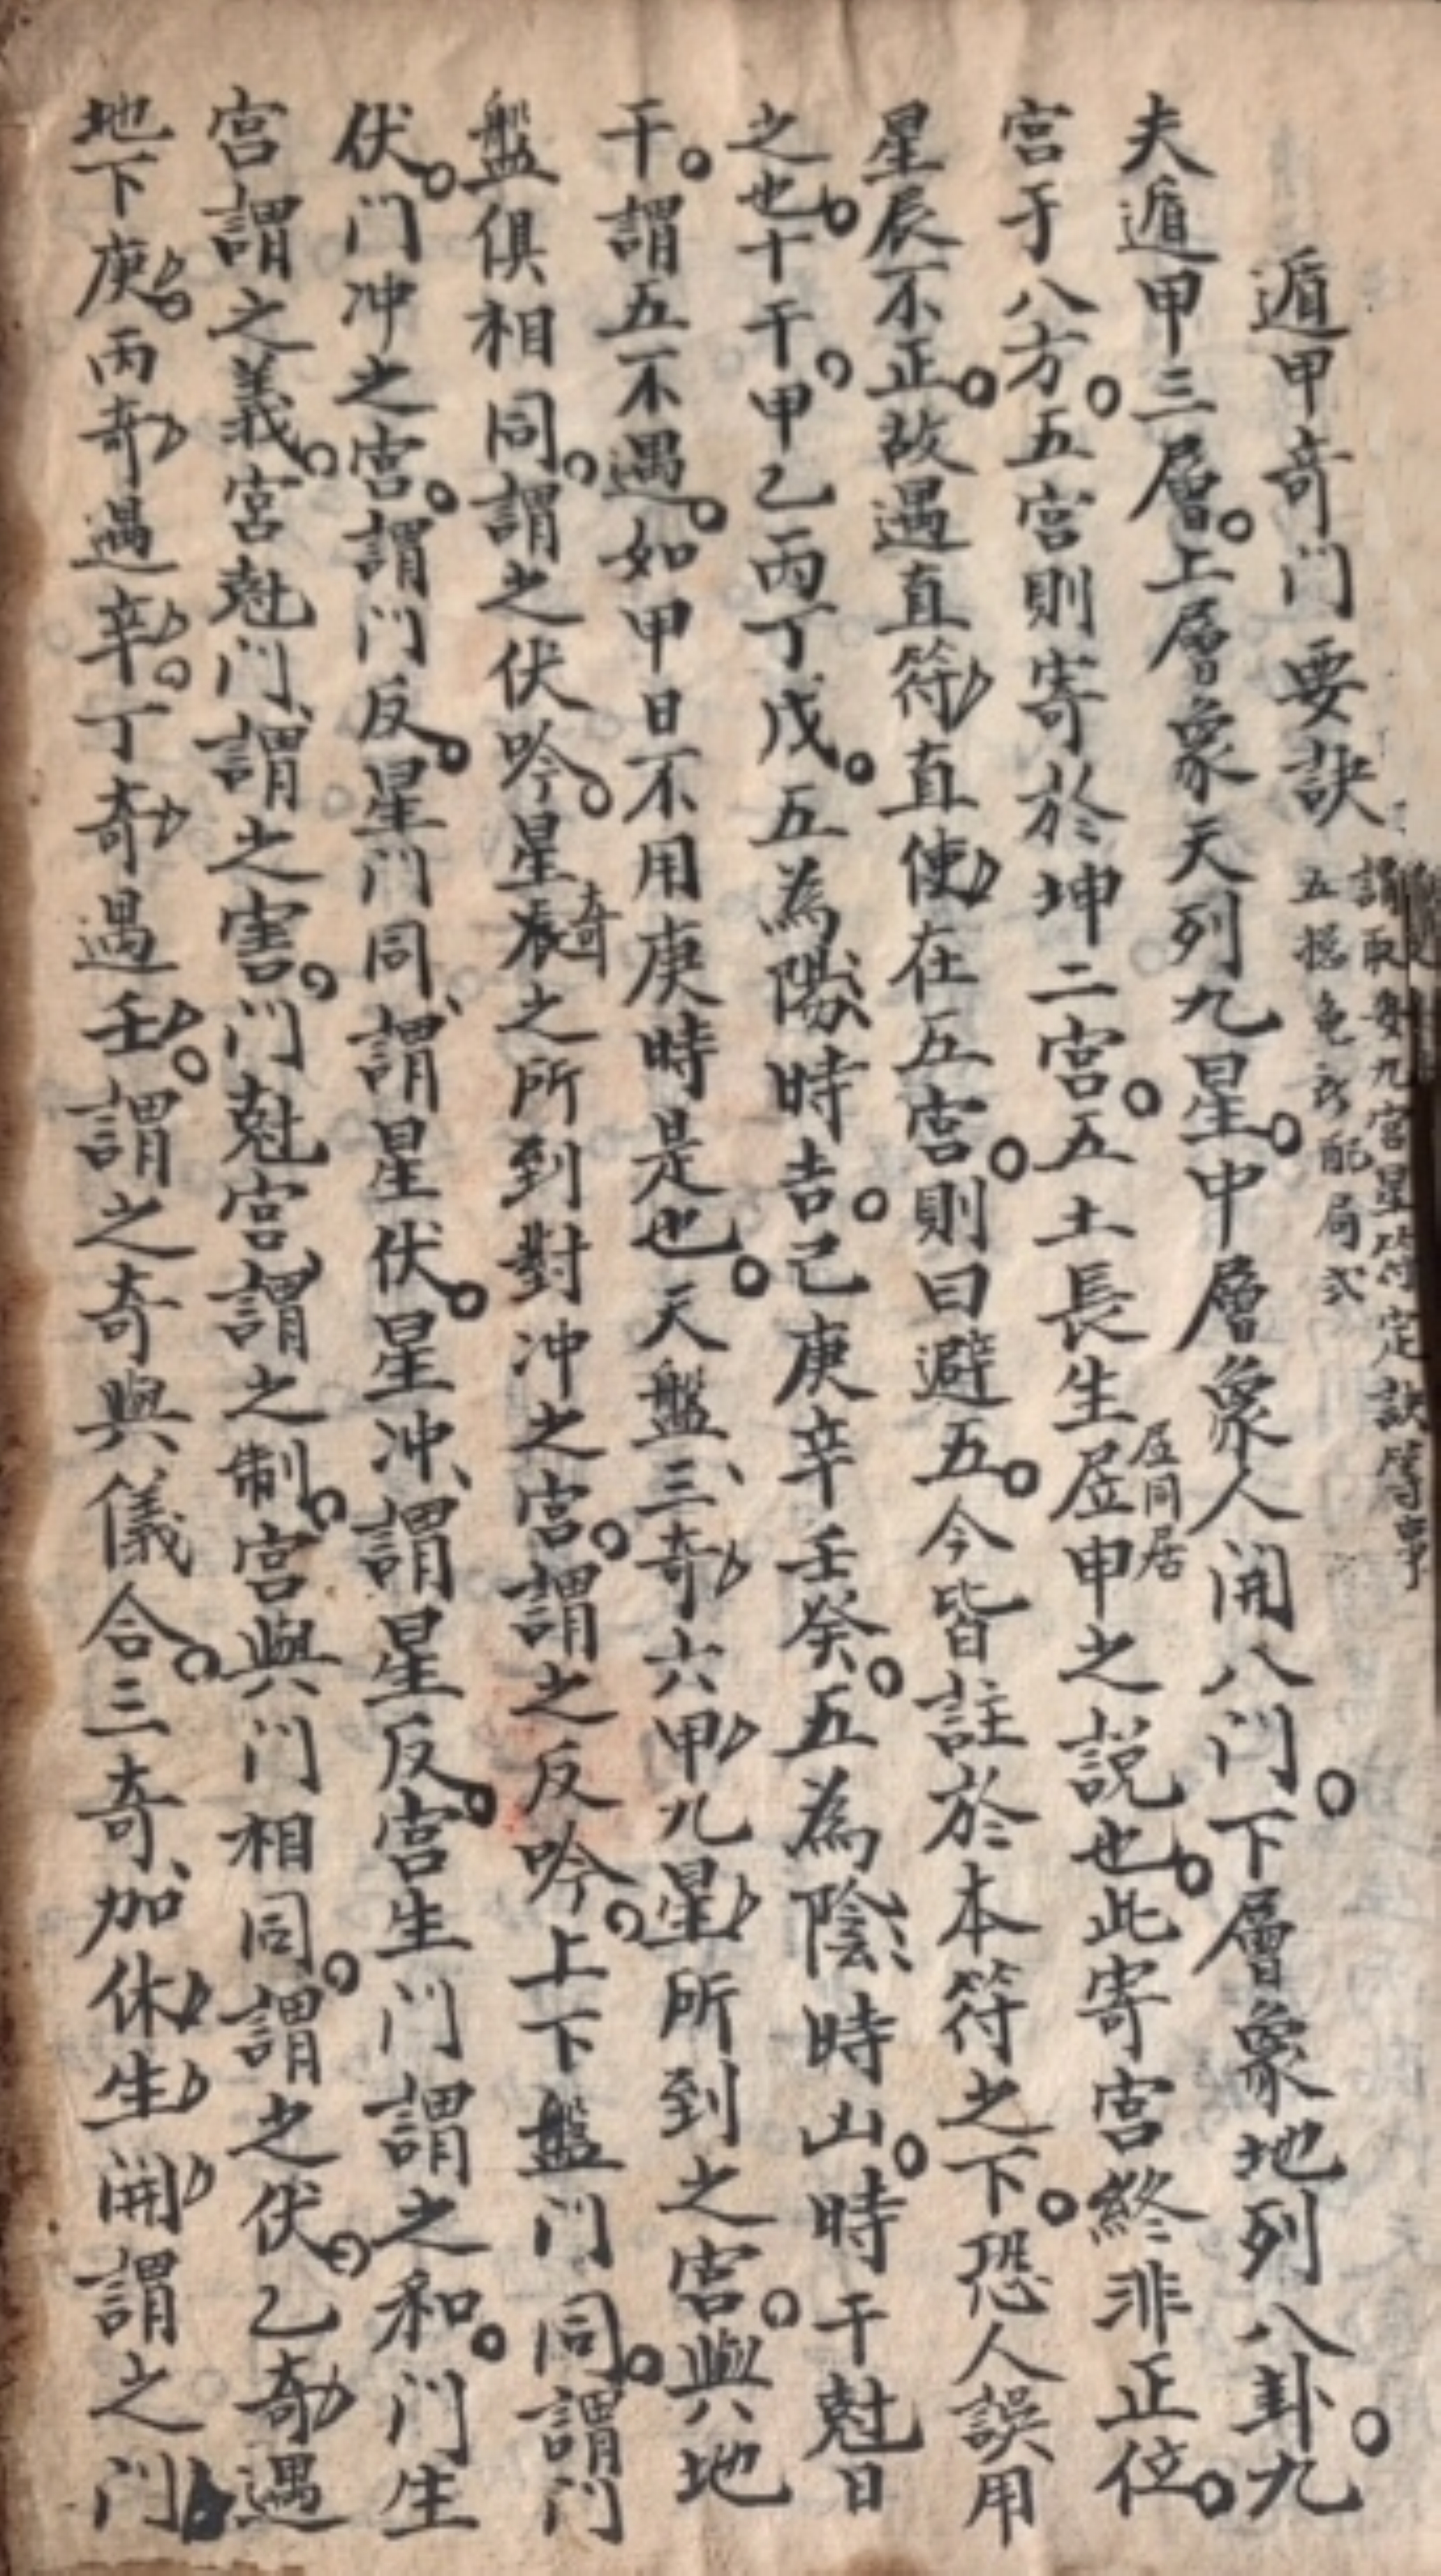 遁甲奇门要訣
謂取安九宮星符定訣等事
五 龟 配局式
夫遁甲三層上層象天列九星中層象人開八门下層象地列八卦九
宮于八方五宮則寄於坤二宮五土長生㞐申之説也此寄宮終非正位
㞐同居
星辰不正故遇直符直使在五宮則曰避五今皆註於本符之下恐人誤用
之也十干甲乙丙丁戊五為陽時吉己庚辛壬癸五為陰時凶時干尅日
干謂五不遇如甲日不用庚時是也天盤三奇六甲九星所到之宮與地
盤俱相同謂之伏吟星辰之所到對冲之宮謂之反吟上下盤门同謂门
奇
伏门冲之宮謂门反星门同謂星伏星冲謂星反宮生门謂之和门生
宮謂之義宮尅门謂之害门尅宮謂之制宮與门相同謂之伏乙奇遇
地下庚丙奇遇辛丁奇遇壬謂之奇與儀合三奇加休生開謂之门